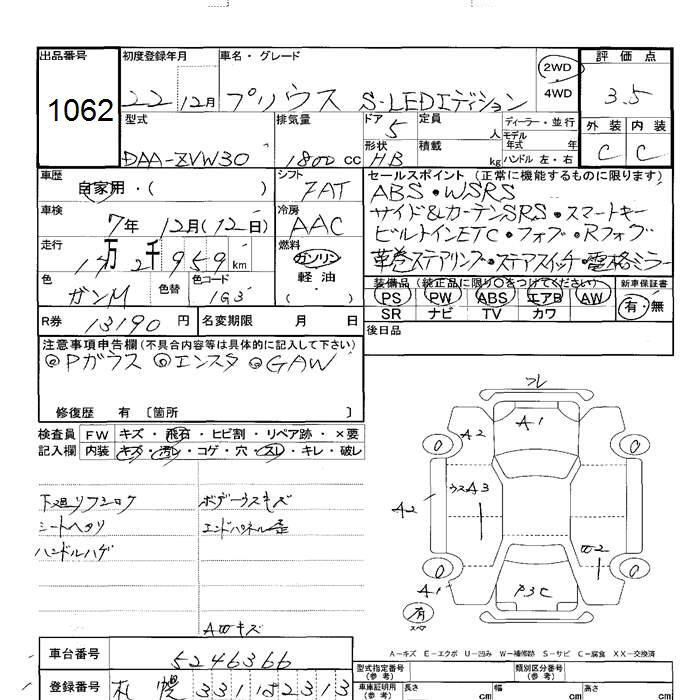 出品番号
1062
初度登録年月
22 12月
車名・グレード
プリウス S-LEDエディション
2WD
4WD
評価点
3.5
外装 内装
C C
型式
DAA-ZVW30
排気量
1800 cc
ドア
5
形状
HB
定員
人
積載
kg
ディーラー・並行
モデル年式 年
ハンドル 左・右
車歴
自家用・( )
シフト
7AT
車検
7年 12月(12日)
冷房
AAC
走行
万 千
2 959 km
燃料
ガソリン
軽油
色
ガンM
色替
色コード
1G3
R券
13190 円
名変期限 月 日
セールスポイント (正常に機能するものに限ります)
ABS・WSRS
サイド&カーテンSRS・スマートキー
ビルトインETC・フォグ・Rフォグ
革巻ステアリング・ステアスイッチ・電格ミラー
装備品 (純正品に限り○をつけてください)
PS PW ABS エアB AW
SR ナビ TV カワ
新車保証書
有・無
後日品
注意事項申告欄(不具合内容等は具体的に記入して下さい)
◎Pガラス ◎エンスタ ◎GAW
修復歴 有 〔箇所 〕
検査員記入欄
FW キズ・飛石・ヒビ割・リペア跡・×要
内装 キズ・汚レ・コゲ・穴・スレ・キレ・破レ
下廻りフショク
シートヘタリ
ハンドルハゲ
ボデーウスキズ
エンドパネル歪
AWキズ
フレ
A1
A2
0 0
ウスA3
A2
W2
0 0
A1
有
スペア
A-キズ E-エクボ U-凹み W-補修跡 S-サビ C-腐食 XX-交換済
車台番号
5246366
登録番号
札幌 331 は 2313
型式指定番号(参考)
類別区分番号(参考)
車庫証明用(参考)
長さ cm
幅 cm
高さ cm